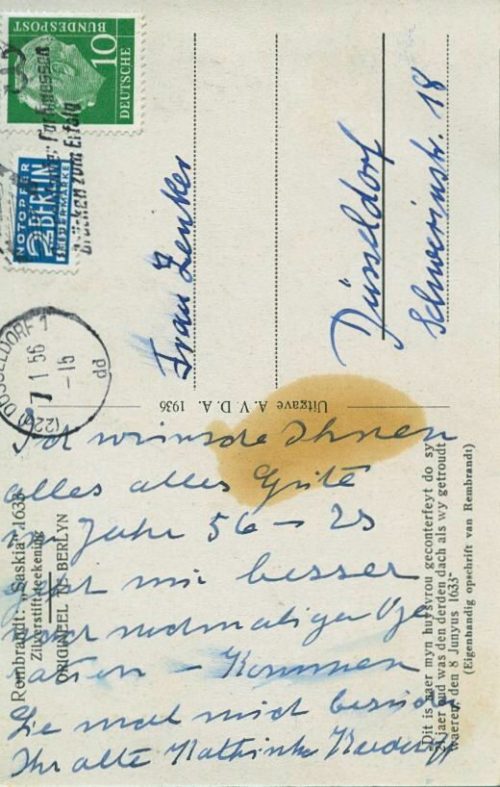 DEUTSCHE
BUNDESPOST
10
NOTOPFER
2 BERLIN
STEUERMARKE
Fachmessen
Brücken zum Erfolg
DÜSSELDORF 1
7 1 56
-15
dd
(22a)
Frau Zenker
Düsseldorf
Schwerinstr. 18
Uitgave A. V. D. A. 1936
Ich wünsche Ihnen
alles alles Gute
im Jahr 56 – Es
geht mir besser
nach nochmaliger Ope
ration – Kommen
Sie mal mich besuchen
Ihr alte Kathinka
Rembrandt: „Saskia" 1633
Zilverstiftteekening
ORIGINEEL TE BERLYN
Dit is naer myn huysvrou geconterfeyt do sy
21 jaer oud was den derden dach als wy getroudt
waeren den 8 Junyus 1633"
(Eigenhandig opschrift van Rembrandt)